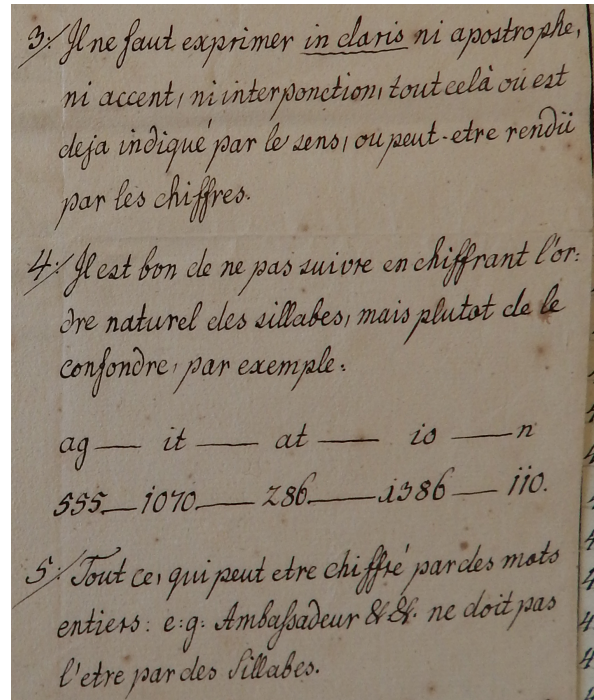 3:/ Il ne faut exprimer in claris ni apostrophe,
ni accent, ni interponction, tout celà où est
deja indiqué par le sens, ou peut-etre rendü
par les chiffres.
4:/ Il est bon de ne pas suivre en chiffrant l'or:
dre naturel des sillabes, mais plutot de le
confondre, par exemple:
ag — it — at — io — n
555 — 1070 — 286 — 1386 — 110.
5:/ Tout ce, qui peut etre chiffré par des mots
entiers: e:g: Ambassadeur &c &c. ne doit pas
l'etre par des Sillabes.